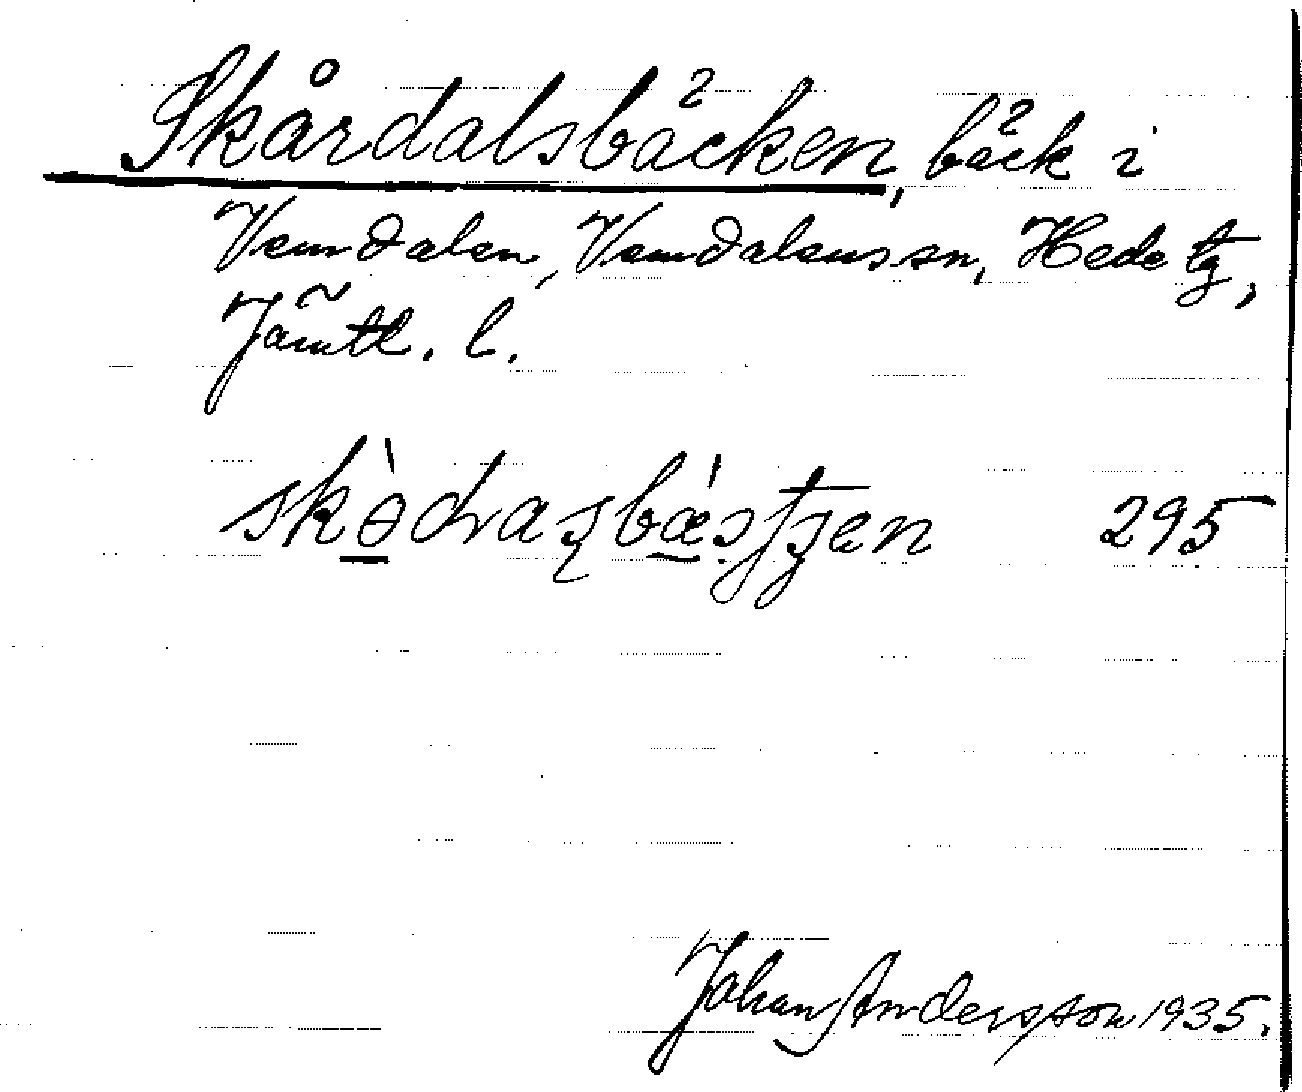 Skårdalsbäcken, bäck i
Vemdalen, Vemdalens sn, Hede tg,
Jämtl. l.
295
Johan Andersson 1935.